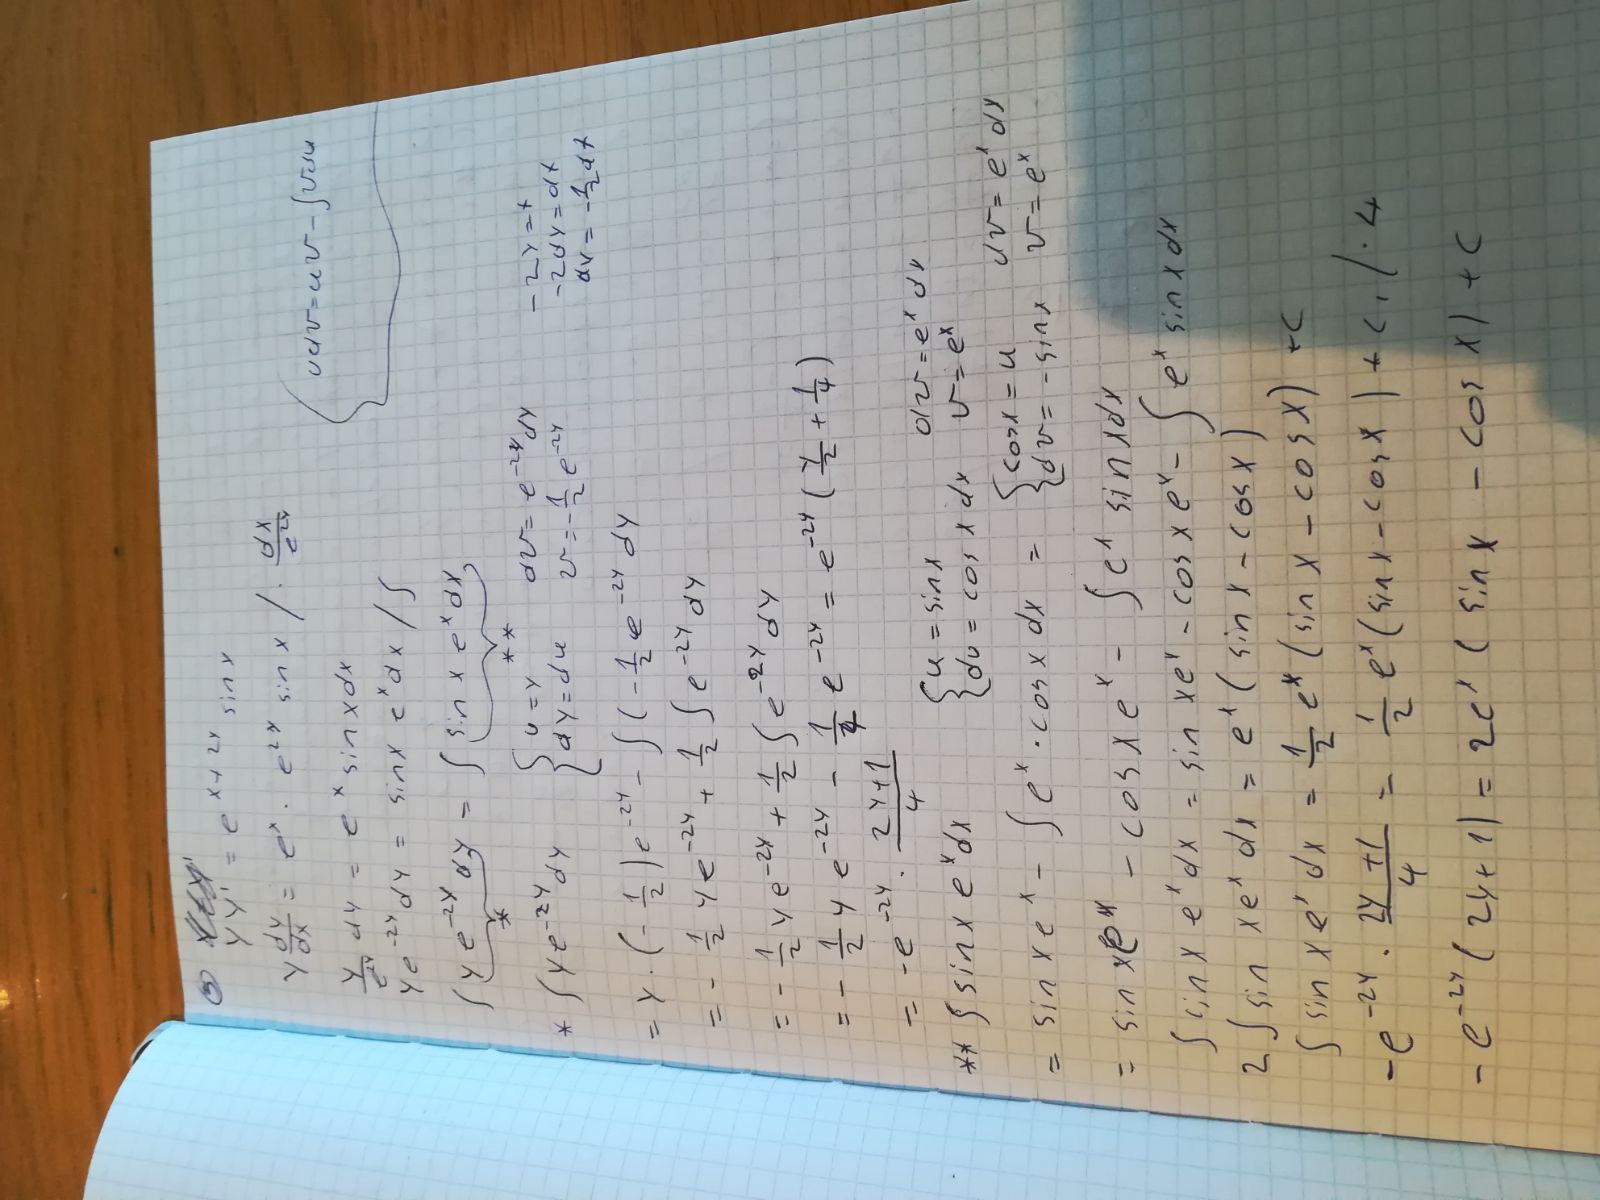 5
y y' = e^{x+2y} sin x
y dy/dx = e^x · e^{2y} sin x / · dx/e^{2y}
udv = uv - ∫vdu
y/e^{2y} dy = e^x sin x dx
y e^{-2y} dy = sin x e^x dx / ∫
∫ y e^{-2y} dy = ∫ sin x e^x dx
* **
* ∫ y e^{-2y} dy { u = y dv = e^{-2y} dy -2y = t
{ dy = du v = -1/2 e^{-2y} -2dy = dt
dy = -1/2 dt
= y · (-1/2) e^{-2y} - ∫ (-1/2 e^{-2y} dy
= -1/2 y e^{-2y} + 1/2 ∫ e^{-2y} dy
= -1/2 y e^{-2y} + 1/2 ∫ e^{-2y} dy
= -1/2 y e^{-2y} - 1/4 e^{-2y} = e^{-2y} (y/2 + 1/4)
= -e^{-2y} · (2y+1)/4
** ∫ sin x e^x dx { u = sin x dv = e^x dx
{ du = cos x dx v = e^x
= sin x e^x - ∫ e^x · cos x dx = { cos x = u dv = e^x dx
{ dv = -sin x v = e^x
= sin x e^x - cos x e^x - ∫ e^x sin x dx
∫ sin x e^x dx = sin x e^x - cos x e^x - ∫ e^x sin x dx
2 ∫ sin x e^x dx = e^x (sin x - cos x)
∫ sin x e^x dx = 1/2 e^x (sin x - cos x) + c
-e^{-2y} · (2y+1)/4 = 1/2 e^x (sin x - cos x) + c_1 / · 4
-e^{-2y} (2y+1) = 2e^x (sin x - cos x) + c